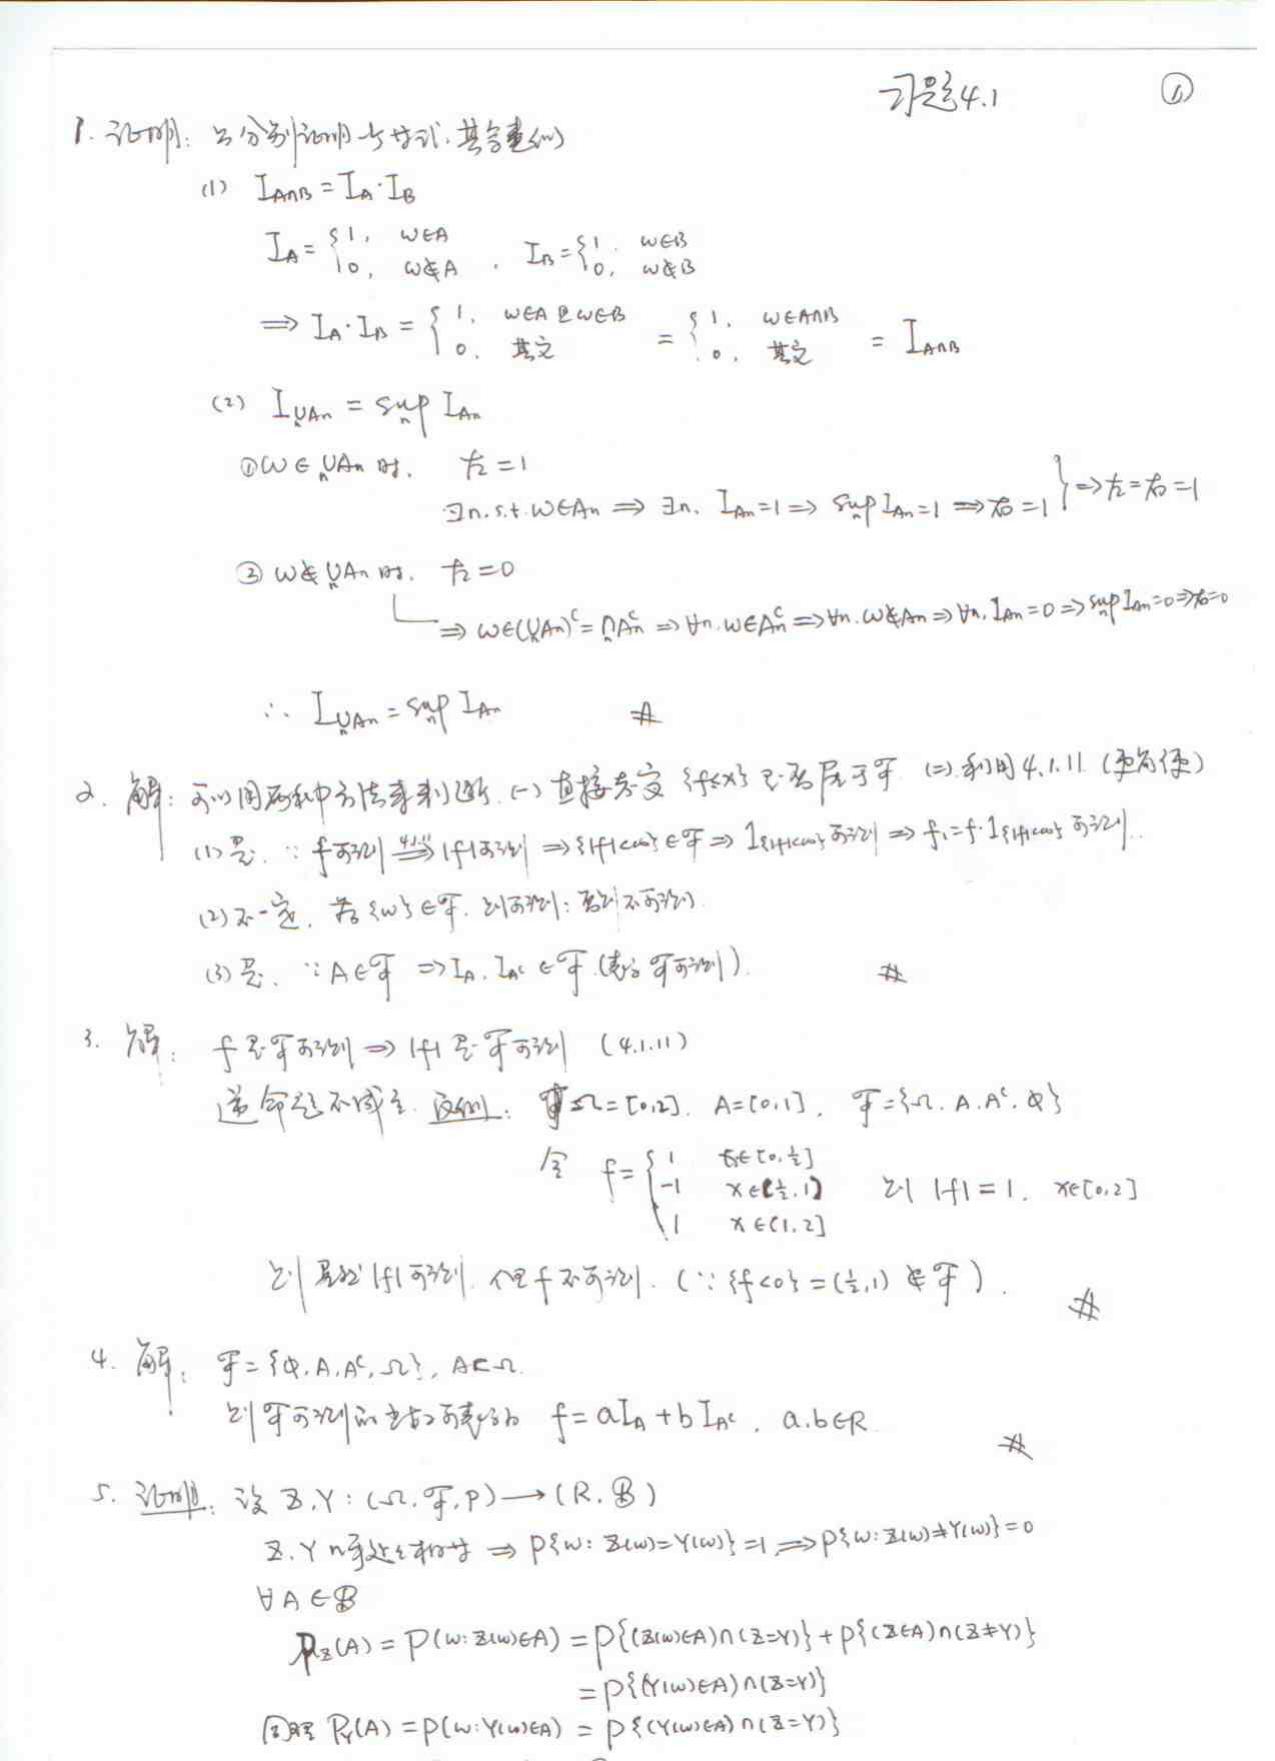 习题4.1 ①
1. 证明: 只分别证明与等式, 其余类似
(1) I_{A∩B} = I_A·I_B
I_A = { 1, ω∈A ; 0, ω∉A , I_B = { 1, ω∈B ; 0, ω∉B
⟹ I_A·I_B = { 1, ω∈A且ω∈B ; 0, 其它 = { 1, ω∈A∩B ; 0, 其它 = I_{A∩B}
(2) I_{∪_n A_n} = sup_n I_{A_n}
① ω∈∪_n A_n 时, 左=1
∃n, s.t. ω∈A_n ⟹ ∃n, I_{A_n}=1 ⟹ sup_n I_{A_n}=1 ⟹ 右=1 } ⟹ 左=右=1
② ω∉∪_n A_n 时, 左=0
⟹ ω∈(∪_n A_n)^c = ∩_n A_n^c ⟹ ∀n, ω∈A_n^c ⟹ ∀n, ω∉A_n ⟹ ∀n, I_{A_n}=0 ⟹ sup_n I_{A_n}=0 ⟹ 右=0
∴ I_{∪_n A_n} = sup_n I_{A_n} #
2. 解: 可以用两种方法来判断, (一) 直接来定 {f≤x} 是否属于ℱ (二) 利用4.1.11 (更简便)
(1) 是, ∵ f可测 ⟹(4.1.11) |f|可测 ⟹ {|f|<∞}∈ℱ ⟹ 1_{|f|<∞}可测 ⟹ f₁=f·1_{|f|<∞} 可测.
(2) 不一定, 若{ω}∈ℱ, 则可测; 否则不可测
(3) 是, ∵ A∈ℱ ⟹ I_A, I_{A^c} ∈ℱ (表示ℱ可测). #
3. 解: f是ℱ可测 ⟹ |f|是ℱ可测 (4.1.11)
逆命题不成立. 反例: Ω=[0,2], A=[0,1], ℱ={Ω, A, A^c, φ}
令 f = { 1 x∈[0,½] ; -1 x∈(½,1) ; 1 x∈(1,2] 则 |f|=1, x∈[0,2]
则显然|f|可测, 但f不可测. (∵ {f<0}=(½,1)∉ℱ). #
4. 解: ℱ={φ, A, A^c, Ω}, A⊂Ω.
则ℱ可测函数可表示为 f=aI_A+bI_{A^c}, a,b∈R #
5. 证明: 设 Z,Y: (Ω,ℱ,P)⟶(R,ℬ)
Z,Y 几乎处处相等 ⟹ P{ω: Z(ω)=Y(ω)}=1 ⟹ P{ω: Z(ω)≠Y(ω)}=0
∀A∈ℬ
P_Z(A) = P(ω: Z(ω)∈A) = P{(Z(ω)∈A)∩(Z=Y)} + P{(Z∈A)∩(Z≠Y)}
= P{(Y(ω)∈A)∩(Z=Y)}
同理 P_Y(A) = P(ω: Y(ω)∈A) = P{(Y(ω)∈A)∩(Z=Y)}